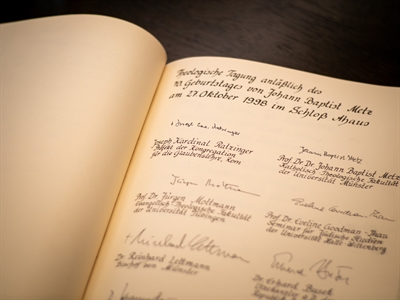 Theologische Tagung anläßlich des
70. Geburtstages von Johann Baptist Metz
am 27. Oktober 1998 im Schloß Ahaus
+ Joseph Card. Ratzinger
Joseph Kardinal Ratzinger
Präfekt der Kongregation
für die Glaubenslehre, Rom
Johann Baptist Metz
Prof. Dr. Dr. Johann Baptist Metz
Katholisch-Theologische Fakultät
der Universität Münster
Jürgen Moltmann
Prof. Dr. Jürgen Moltmann
Evangelisch-Theologische Fakultät
der Universität Tübingen
Prof. Dr. Eveline Goodman-Thau
Seminar für Jüdische Studien
der Universität Halle-Wittenberg
+ Reinhard Lettmann
Dr. Reinhard Lettmann
Bischof von Münster
Erhard Busek
Dr. Erhard Busek